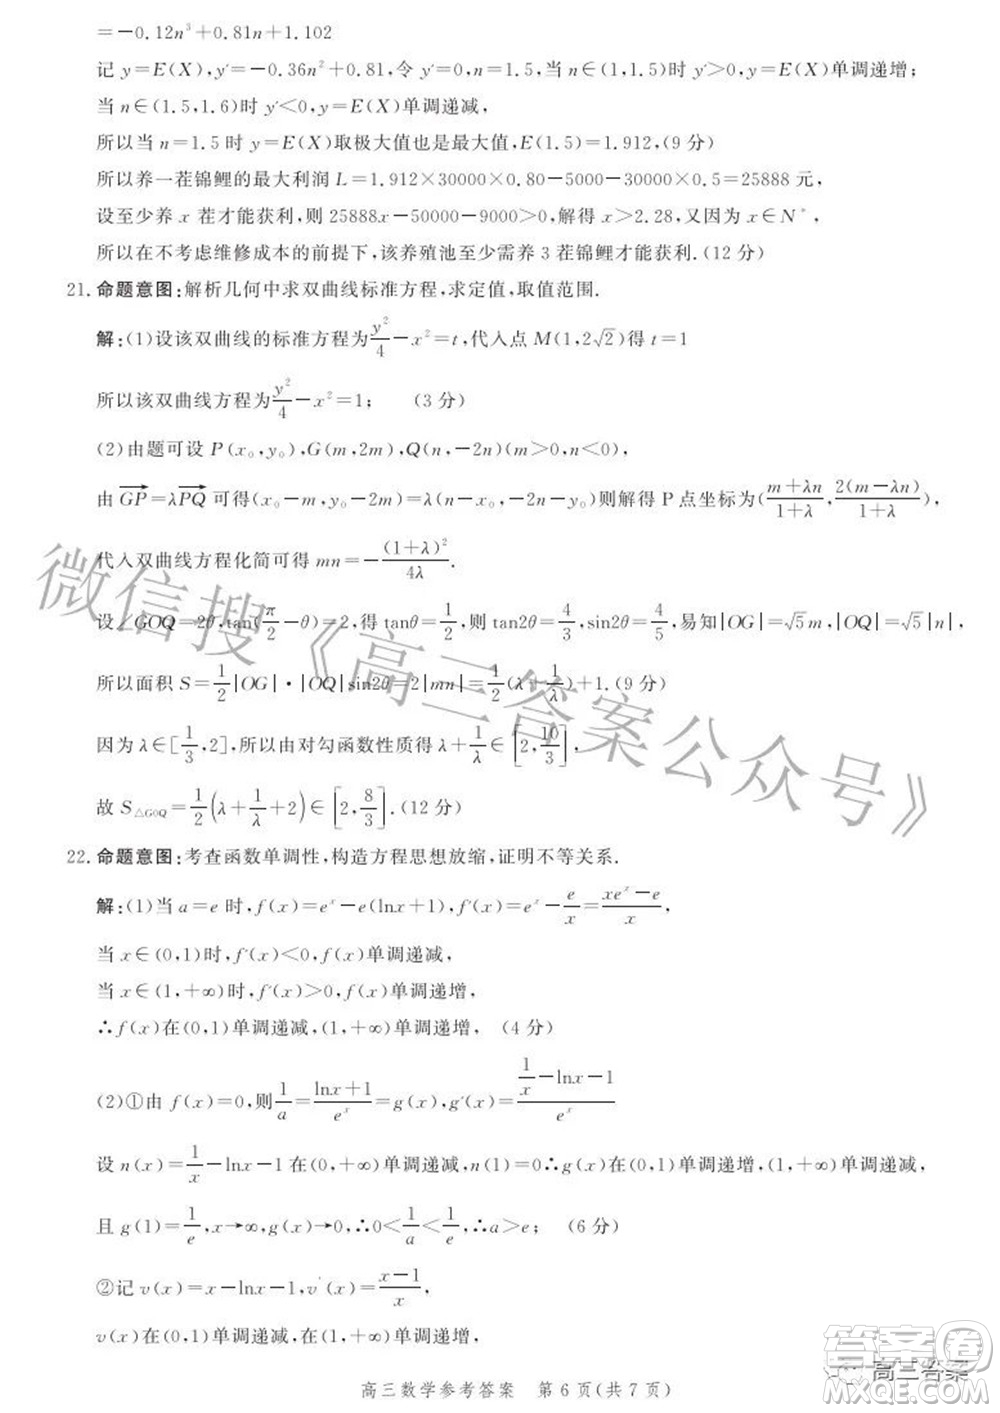 =-0.12n³+0.81n+1.102
记 y=E(X),y′=-0.36n²+0.81,令 y′=0,n=1.5,当 n∈(1,1.5)时 y′>0,y=E(X)单调递增;
当 n∈(1.5,1.6)时 y′<0,y=E(X)单调递减,
所以当 n=1.5 时 y=E(X)取极大值也是最大值,E(1.5)=1.912,(9 分)
所以养一茬锦鲤的最大利润 L=1.912×30000×0.80-5000-30000×0.5=25888 元,
设至少养 x 茬才能获利,则 25888x-50000-9000>0,解得 x>2.28,又因为 x∈N*,
所以在不考虑维修成本的前提下,该养殖池至少需养 3 茬锦鲤才能获利.(12 分)
21.命题意图:解析几何中求双曲线标准方程,求定值,取值范围.
解:(1)设该双曲线的标准方程为y²/4-x²=t,代入点 M(1,2√2)得 t=1
所以该双曲线方程为y²/4-x²=1; (3 分)
(2)由题可设 P(x₀,y₀),G(m,2m),Q(n,-2n)(m>0,n<0),
由 GP=λPQ 可得(x₀-m,y₀-2m)=λ(n-x₀,-2n-y₀)则解得 P 点坐标为((m+λn)/(1+λ),2(m-λn)/(1+λ)),
代入双曲线方程化简可得 mn=-(1+λ)²/4λ.
设∠GOQ=2θ,tan(π/2-θ)=2,得 tanθ=1/2,则 tan2θ=4/3,sin2θ=4/5,易知|OG|=√5m,|OQ|=√5|n|,
所以面积 S=1/2|OG|·|OQ|sin2θ=2|mn|=1/2(λ+1/λ)+1.(9 分)
因为 λ∈[1/3,2],所以由对勾函数性质得 λ+1/λ∈[2,10/3],
故 S△GOQ=1/2(λ+1/λ+2)∈[2,8/3].(12 分)
22.命题意图:考查函数单调性,构造方程思想放缩,证明不等关系.
解:(1)当 a=e 时,f(x)=eˣ-e(lnx+1),f′(x)=eˣ-e/x=(xeˣ-e)/x,
当 x∈(0,1)时,f′(x)<0,f(x)单调递减,
当 x∈(1,+∞)时,f′(x)>0,f(x)单调递增,
∴f(x)在(0,1)单调递减,(1,+∞)单调递增, (4 分)
(2)①由 f(x)=0,则1/a=(lnx+1)/eˣ=g(x),g′(x)=(1/x-lnx-1)/eˣ
设 n(x)=1/x-lnx-1 在(0,+∞)单调递减,n(1)=0∴g(x)在(0,1)单调递增,(1,+∞)单调递减,
且 g(1)=1/e,x→∞,g(x)→0,∴0<1/a<1/e,∴a>e; (6 分)
②记 v(x)=x-lnx-1,v′(x)=(x-1)/x,
v(x)在(0,1)单调递减,在(1,+∞)单调递增,
高三数学参考答案 第 6 页(共 7 页)
微信搜《高三答案公众号》
答案卷
高三答案